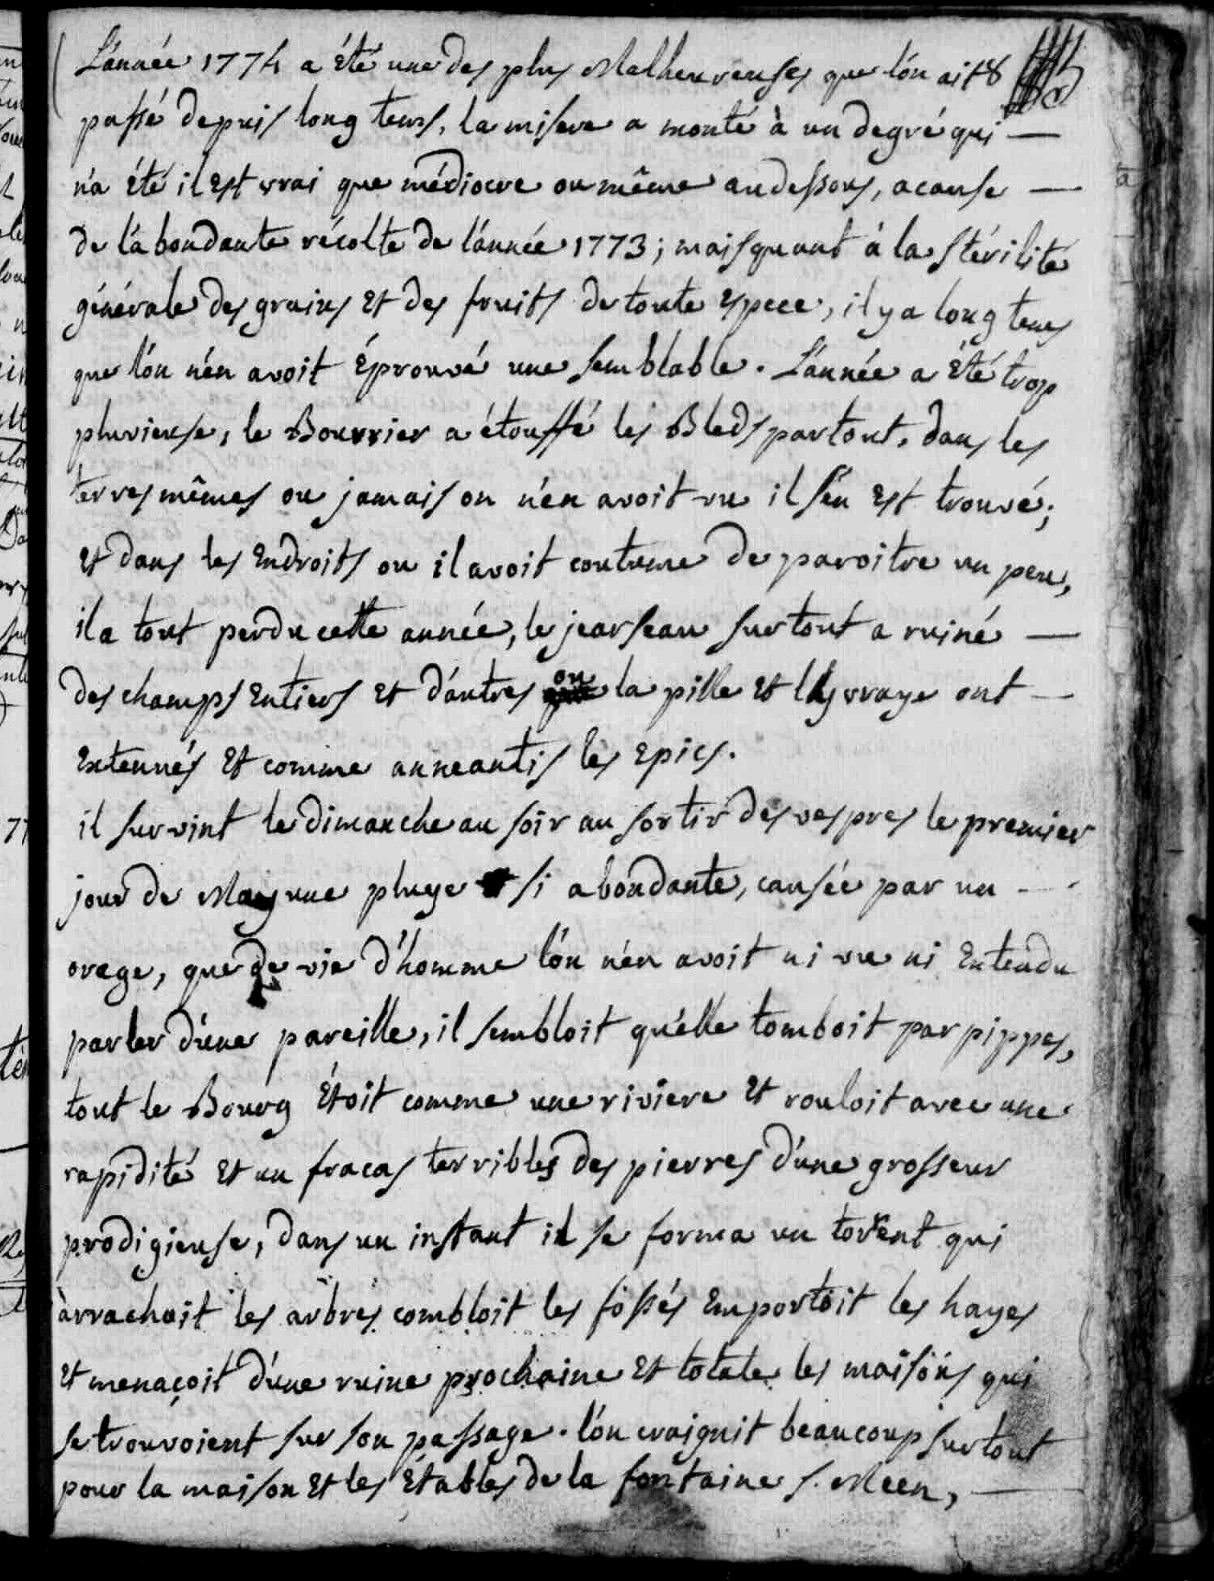 L'année 1774 a été une des plus Malheureuses que l'ón ait
passé depuis long tems, la misere a monté à un degré qui —
n'a été il est vrai que médiocre ou même audessous, acause —
de l'abondante récolte de l'ánnée 1773; mais quant à la stérilité
générale des grains et des fruits de toute espece, il y a long tems
que l'ón n'én avoit éprouvé une semblable. L'ánnée a été trop
pluvieuse, le Bourrier a étouffé les Bleds partout, dans les
terres mêmes ou jamais on n'en avoit vu il s'én est trouvé;
et dans les Endroits ou il avoit coutume de paroitre un peu,
il a tout perdu cette année, le jearseau surtout a ruiné —
des champs Entiers et d'áutres ou la pille et l'yvraye ont —
Extenués et comme anneantis les Epics.
il survint le dimanche au soir au sortir des vespres le premier
jour de May une pluye si abondante, causée par un —
orage, que de vie d'homme l'ón n'én avoit ni vu ni Entendu
parler d'úne pareille, il sembloit qu'elle tomboit par pippes,
tout le Bourg Étoit comme une riviere et rouloit avec une
rapidité et un fracas terribles des pierres d'úne grosseur
prodigieuse, dans un instant il se forma un torent qui
arrachoit les arbres combloit les fossés Emportoit les hayes
et menaçoit d'úne ruine prochaine et totale les maisons qui
se trouvoient sur son passage. l'ón craignit beaucoup surtout
pour la maison et les Etables de la fontaine S. Méen, —